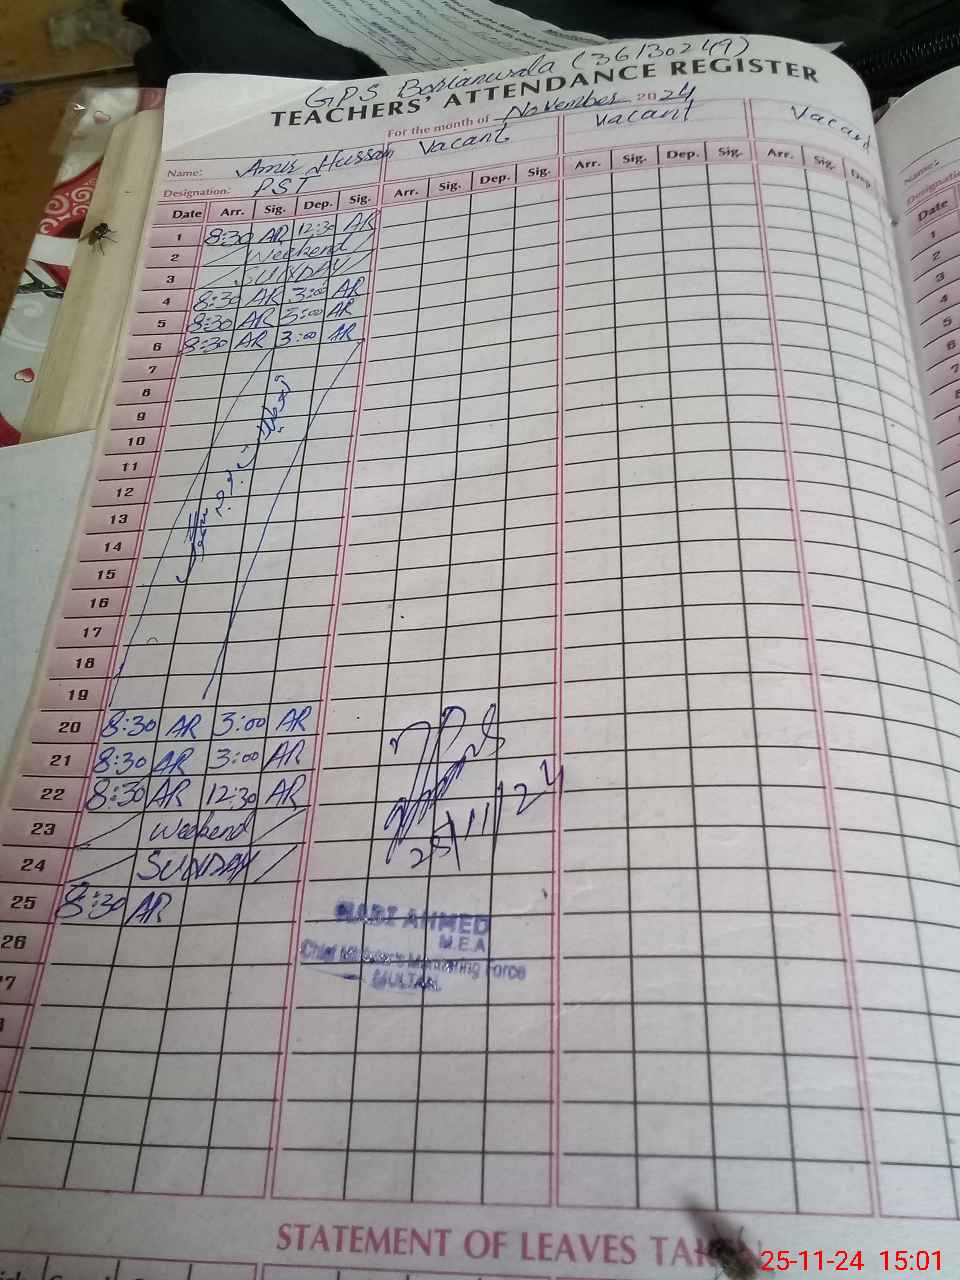 GPS (36130249)
TEACHERS' ATTENDANCE REGISTER
For the month of November 2024
Name: Amir Hussain Vacant Vacant Vacant
Designation: PST
Date Arr. Sig. Dep. Sig. Arr. Sig. Dep. Sig. Arr. Sig. Dep. Sig. Arr. Sig. Dep.
1 8:30 AR 12:30 AR
2 Weekend
3 SUNDAY
4 8:30 AR 3:00 AR
5 8:30 AR 3:00 AR
6 8:30 AR 3:00 AR
7
8
9
10
11
12
13
14
15
16
17
18
19
20 8:30 AR 3:00 AR
21 8:30 AR 3:00 AR
22 8:30 AR 12:30 AR
23 Weekend
24 SUNDAY
25 8:30 AR
26
25/11/24
AHMED
M.E.A
Chief Minister's Monitoring Force
MULTAN
STATEMENT OF LEAVES
25-11-24 15:01
Name:
Date
1
2
3
4
5
6
7